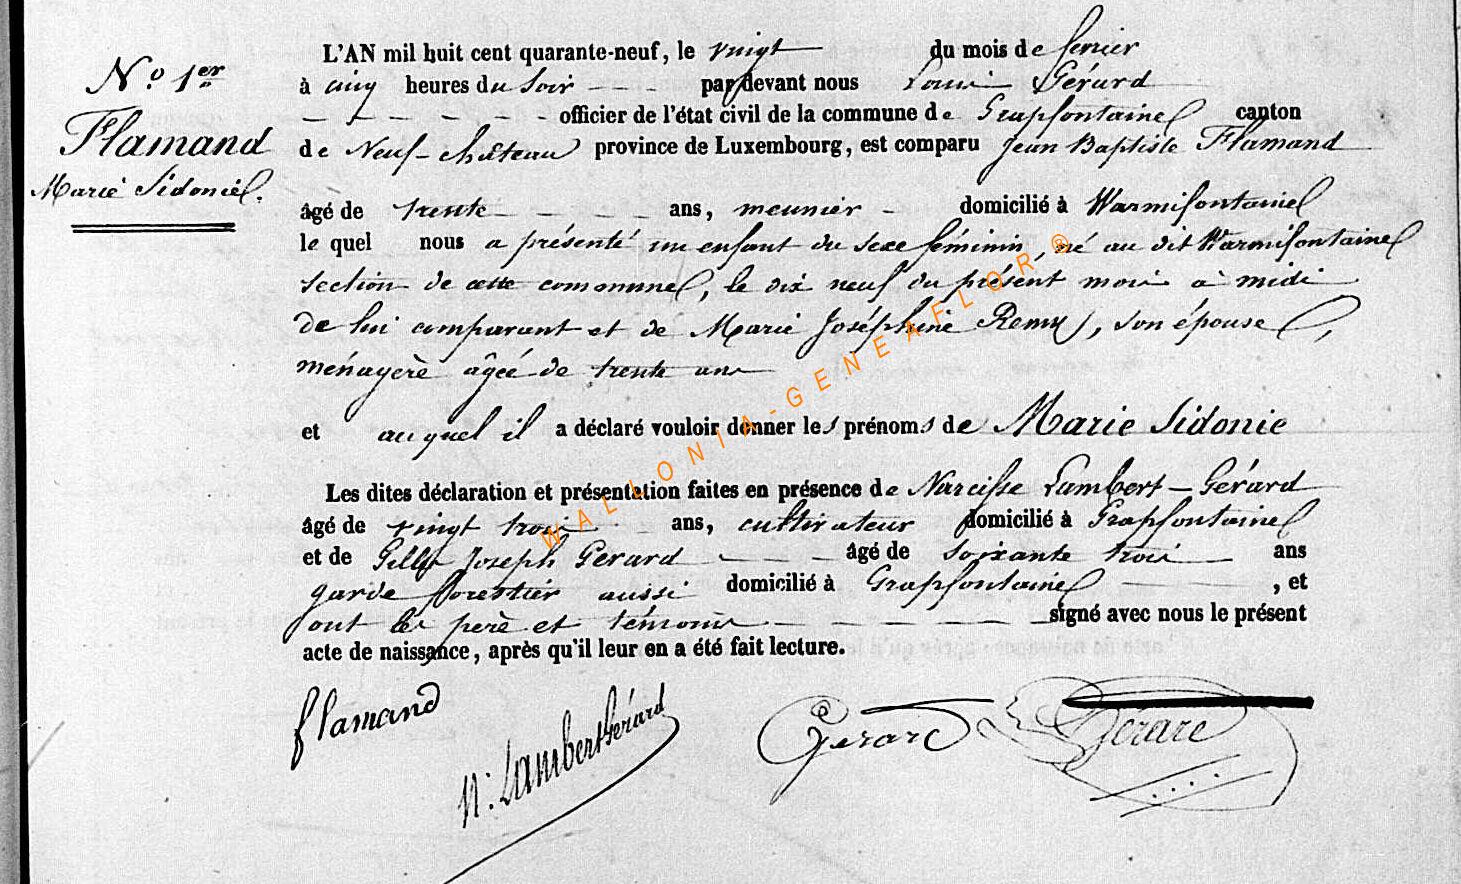 N.º 1.er
Flamand
Marie Sidonie.
L'AN mil huit cent quarante-neuf, le vingt du mois de fevrier
à cinq heures du soir - - - par devant nous Louis Gérard
- - - - - - officier de l'état civil de la commune de Grapfontaine canton
de Neuf-château province de Luxembourg, est comparu Jean Baptiste Flamand
âgé de trente - - - - ans, meunier - domicilié à Warmifontaine
le quel nous a présenté un enfant du sexe féminin, né au dit Warmifontaine
section de cette commune, le dix neuf du présent mois à midi
de lui comparant et de Marie Joséphine Remy, son épouse,
ménagère âgée de trente ans
et auquel il a déclaré vouloir donner les prénoms de Marie Sidonie
Les dites déclaration et présentation faites en présence de Narcisse Lambert-Gérard
âgé de vingt trois - ans, cultivateur domicilié à Grapfontaine
et de Gille Joseph Gerard - - - - âgé de soixante trois - ans
garde forestier aussi domicilié à Grapfontaine - - - , et
ont les père et témoins - - - - - - - signé avec nous le présent
acte de naissance, après qu'il leur en a été fait lecture.
flamand
N: Lambert Gérard
Gerard
Gérard
WALLONIA-GENEAFLOR®